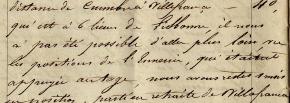 distance de Coimbre à Villefranca — 40,
qui est à 6 lieues de Lisbonne, il nous
a pas été possible d'aller plus loin, vu
les positions de l'ennemi, qui était
appuyée au tage. nous avons restés
en position parti en retraite de Villefranca